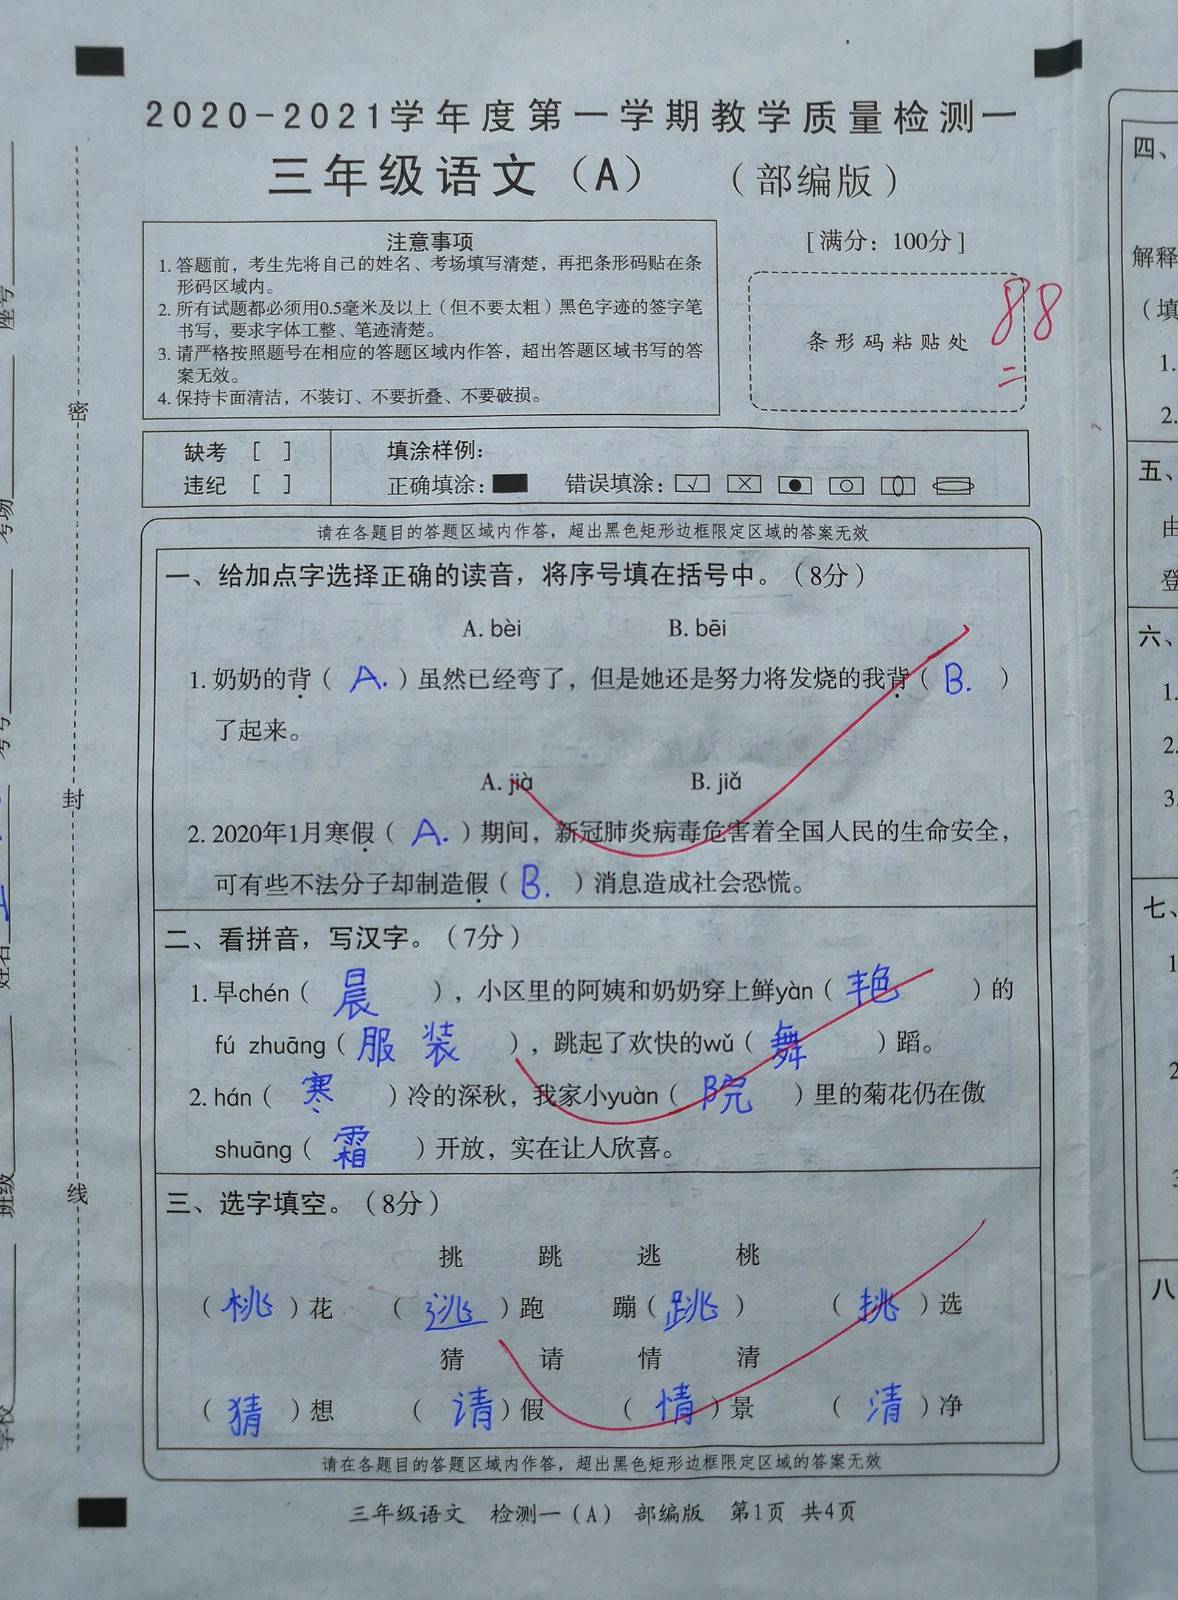 2020-2021学年度第一学期教学质量检测一
三年级语文（A） （部编版）
注意事项
1. 答题前，考生先将自己的姓名、考场填写清楚，再把条形码贴在条
形码区域内。
2. 所有试题都必须用0.5毫米及以上（但不要太粗）黑色字迹的签字笔
书写，要求字体工整、笔迹清楚。
3. 请严格按照题号在相应的答题区域内作答，超出答题区域书写的答
案无效。
4. 保持卡面清洁，不装订、不要折叠、不要破损。
[ 满分：100分 ]
条形码粘贴处
88
缺考 [ ] 填涂样例：
违纪 [ ] 正确填涂： 错误填涂：
请在各题目的答题区域内作答，超出黑色矩形边框限定区域的答案无效
一、给加点字选择正确的读音，将序号填在括号中。（8分）
A. bèi B. bēi
1. 奶奶的背（ A. ）虽然已经弯了，但是她还是努力将发烧的我背（ B. ）
了起来。
A. jià B. jiǎ
2. 2020年1月寒假（ A. ）期间，新冠肺炎病毒危害着全国人民的生命安全，
可有些不法分子却制造假（ B. ）消息造成社会恐慌。
二、看拼音，写汉字。（7分）
1. 早chén（ 晨 ），小区里的阿姨和奶奶穿上鲜yàn（ 艳 ）的
fú zhuāng（ 服 装 ），跳起了欢快的wǔ（ 舞 ）蹈。
2. hán（ 寒 ）冷的深秋，我家小yuàn（ 院 ）里的菊花仍在傲
shuāng（ 霜 ）开放，实在让人欣喜。
三、选字填空。（8分）
挑 跳 逃 桃
（ 桃 ）花 （ 逃 ）跑 蹦（ 跳 ） （ 挑 ）选
猜 请 情 清
（ 猜 ）想 （ 请 ）假 （ 情 ）景 （ 清 ）净
请在各题目的答题区域内作答，超出黑色矩形边框限定区域的答案无效
三年级语文 检测一（A） 部编版 第1页 共4页
密
封
线
座号
考场
考号
姓名
班级
学校
四、
解释
（填
1.
2.
五、
由
登
六、
1.
2.
3.
七、
1
2
3
八